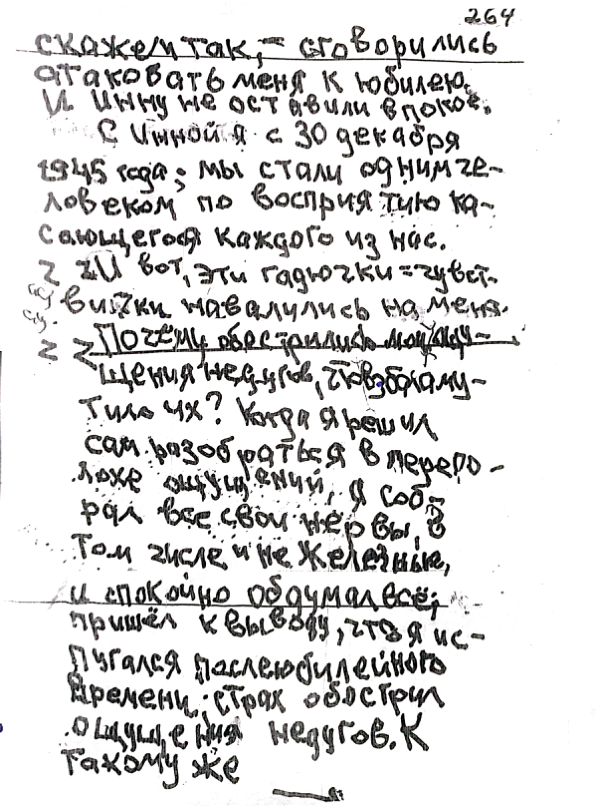 264
скажем так, – сговорились
атаковать меня к юбилею.
И Инну не оставили в покое.
С Инной я с 30 декабря
1945 года; мы стали одним че-
ловеком по восприятию ка-
сающегося каждого из нас.
И вот, эти гадючки=чувст-
вички навалились на меня.
Почему обострились мои ощу-
щения недугов, что взбаламу-
тило их? Когда я решил
сам разобраться в перепо-
лохе ощущений, я соб-
рал все свои нервы, в
том числе и не железные,
и спокойно обдумал всё;
пришёл к выводу, что я ис-
пугался послеюбилейного
времени; страх обострил
ощущения недугов. К
такому же